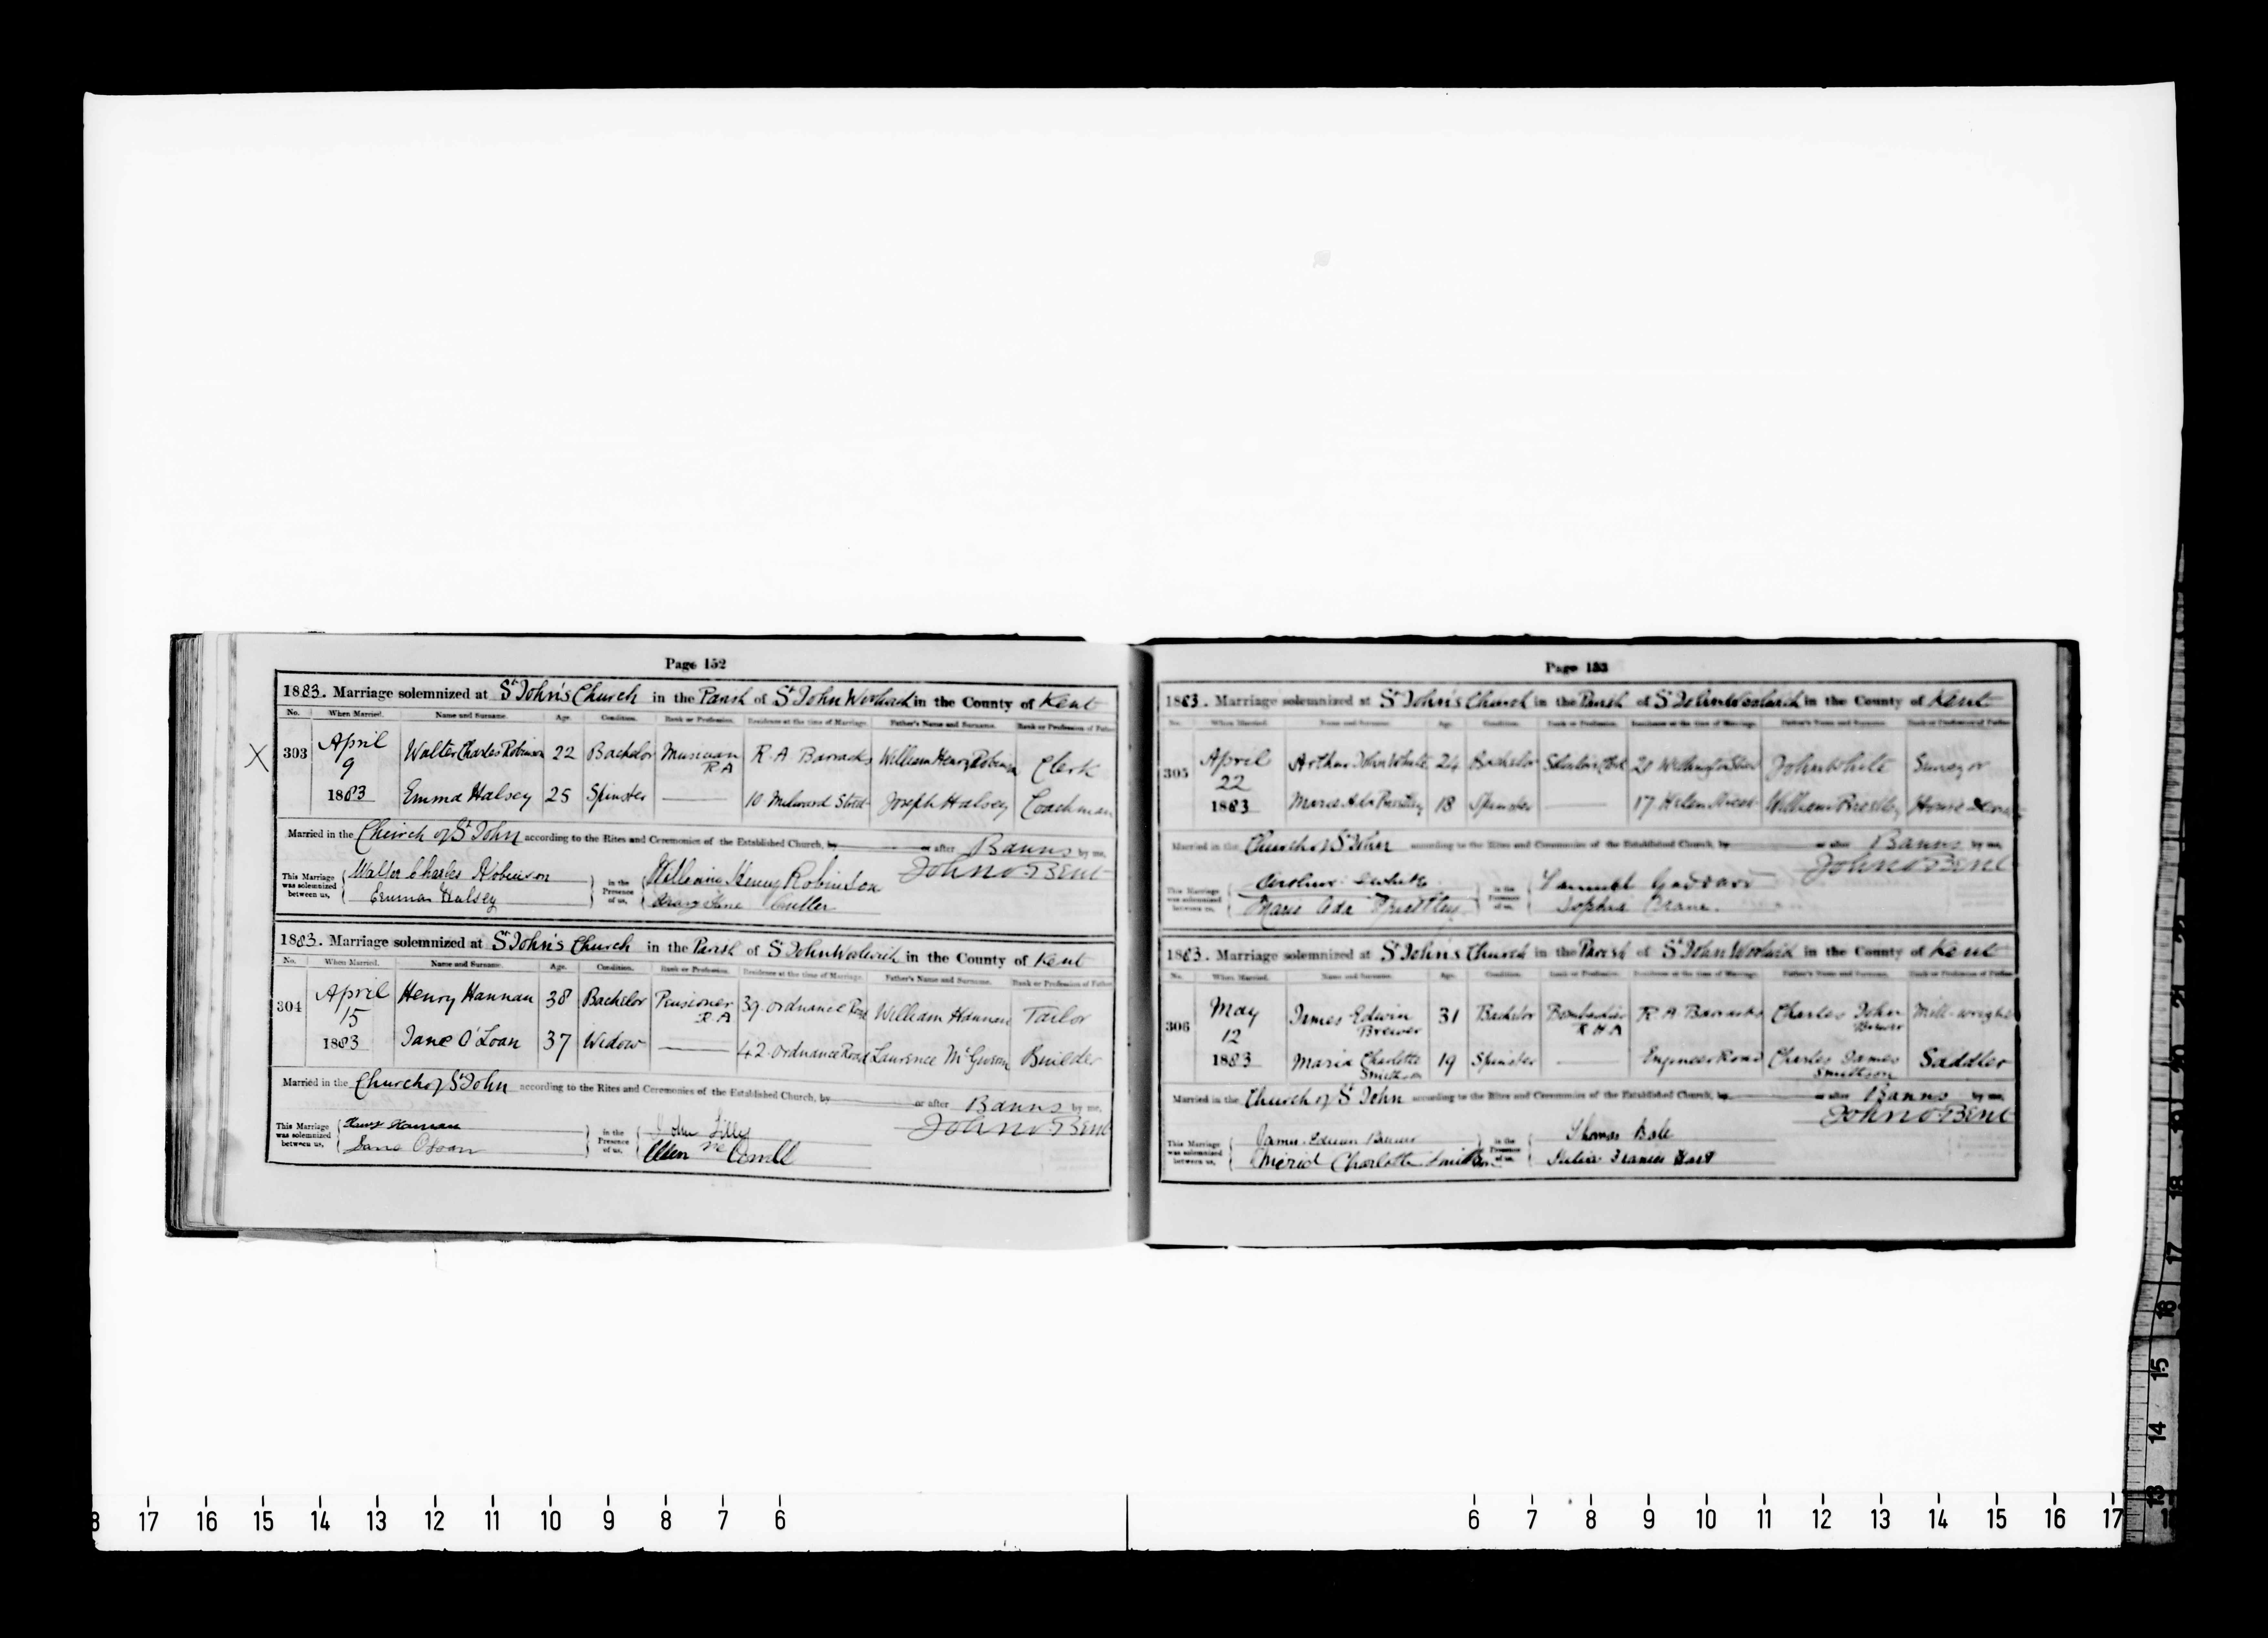 Page 152
1883. Marriage solemnized at St John's Church in the Parish of St John Woolwich in the County of Kent
No. When Married. Name and Surname. Age. Condition. Rank or Profession. Residence at the time of Marriage. Father's Name and Surname. Rank or Profession of Father
X 303 April 9 1883 Walter Charles Robinson 22 Bachelor Musician R A R. A Barracks William Henry Robinson Clerk
Emma Halsey 25 Spinster 10 Milward Street Joseph Halsey Coachman
Married in the Church of St John according to the Rites and Ceremonies of the Established Church, by or after Banns by me,
John O Bent
This Marriage was solemnized between us, Walter Charles Robinson in the Presence of us, William Henry Robinson
Emma Halsey Jane Cutler
1883. Marriage solemnized at St John's Church in the Parish of St John Woolwich in the County of Kent
No. When Married. Name and Surname. Age. Condition. Rank or Profession. Residence at the time of Marriage. Father's Name and Surname. Rank or Profession of Father
304 April 15 1883 Henry Hannan 38 Bachelor Pensioner R. A 39 Ordnance Road William Hannan Tailor
Jane O'Loan 37 Widow 42 Ordnance Road Laurence Builder
Married in the Church of St John according to the Rites and Ceremonies of the Established Church, by or after Banns by me,
John O Bent
This Marriage was solemnized between us, Henry Hannan in the Presence of us, John Lilly
Jane O'Loan Ellen
Page 153
1883. Marriage solemnized at St John's Church in the Parish of St John Woolwich in the County of Kent
No. When Married. Name and Surname. Age. Condition. Rank or Profession. Residence at the time of Marriage. Father's Name and Surname. Rank or Profession of Father
305 April 22 1883 Arthur John White 24 Bachelor 20 Wellington Street John White Surveyor
Marie Ada Priestley 18 Spinster 17 Helen Street William Priestley House
Married in the Church of St John according to the Rites and Ceremonies of the Established Church, by or after Banns by me,
John O Bent
This Marriage was solemnized between us, in the Presence of us, Samuel Goddard
Marie Ada Priestley Sophia Crane.
1883. Marriage solemnized at St John's Church in the Parish of St John Woolwich in the County of Kent
No. When Married. Name and Surname. Age. Condition. Rank or Profession. Residence at the time of Marriage. Father's Name and Surname. Rank or Profession of Father
306 May 12 1883 James Edwin Brewer 31 Bachelor Bombardier R H A R. A Barracks Charles John Brewer Mill-wright
Maria Charlotte Smithson 19 Spinster Engineer Road Charles James Smithson Saddler
Married in the Church of St John according to the Rites and Ceremonies of the Established Church, by or after Banns by me,
John O Bent
This Marriage was solemnized between us, James Edwin Brewer in the Presence of us, Thomas Bale
Charlotte Smithson Julia Frances Hart
22
21
20
19
18
17
16
15
14
13
8 17 16 15 14 13 12 11 10 9 8 7 6 6 7 8 9 10 11 12 13 14 15 16 17